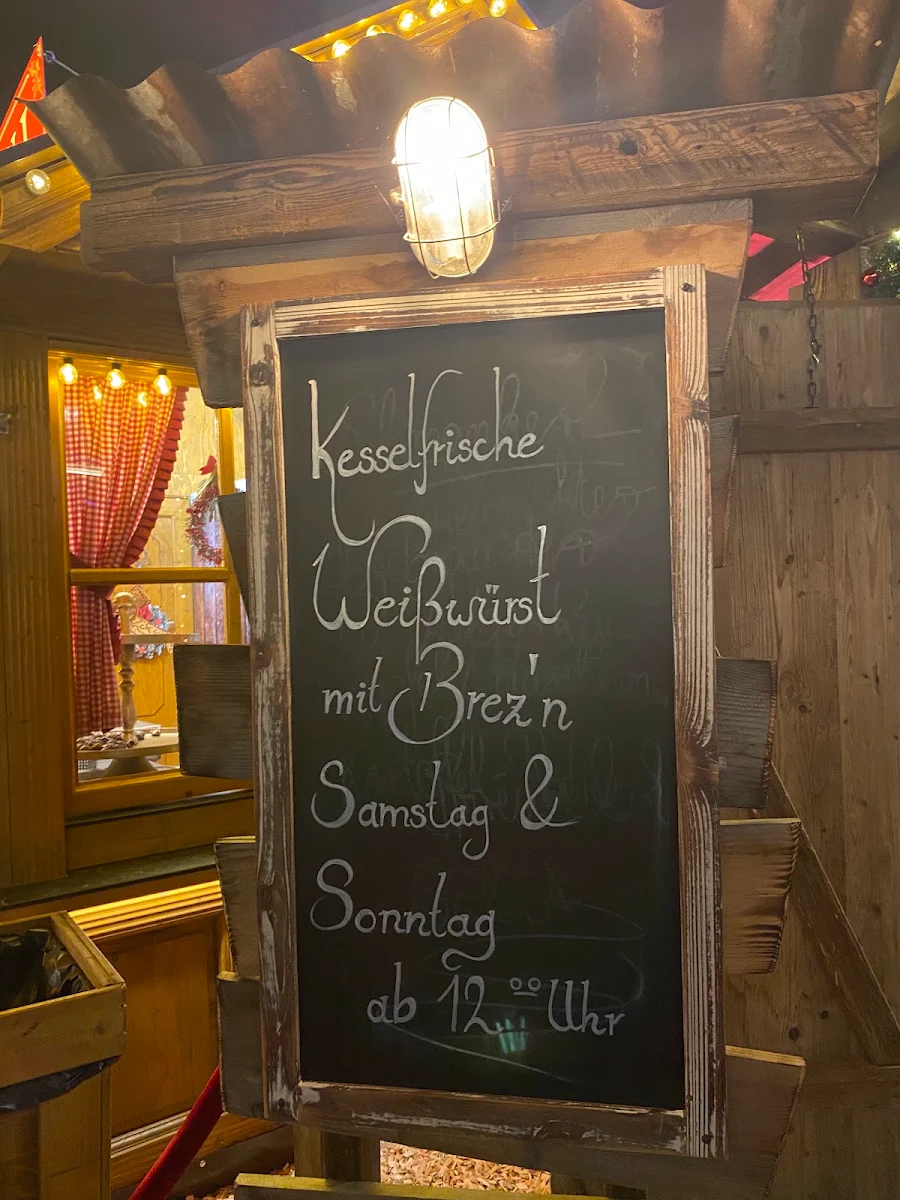 Kesselfrische
Weißwürst
mit Brez'n
Samstag &
Sonntag
ab 12 ⁰⁰ Uhr